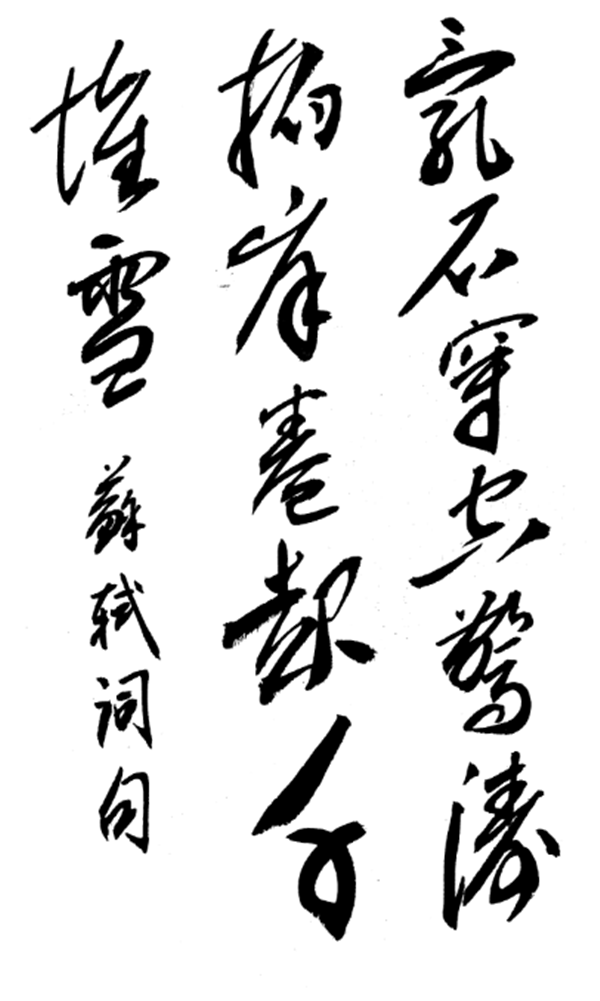 亂石穿空驚濤
拍岸卷起千
堆雪 蘇軾詞句